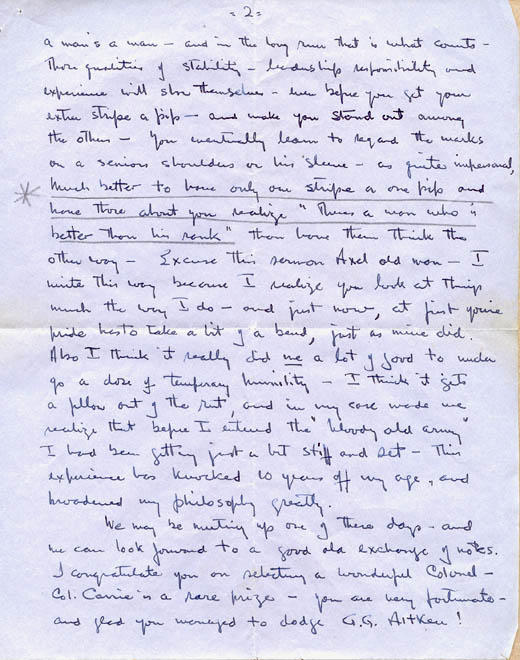 = 2 =
a man's a man – and in the long run that is what counts –
Those qualities of stability – leadership responsibility and
experience will show themselves – even before you get your
extra stripe or pip – and make you stand out among
the others – You eventually learn to regard the marks
on a seniors shoulders or his sleeve – as quite impersonal,
Much better to have only one stripe or one pip and
have those about you realize "There's a man who is
better than his rank" than have them think the
other way – Excuse this sermon Axel old man – I
write this way because I realize you look at things
much the way I do – and just now, at first you're
pride has to take a bit of a bend, just as mine did.
Also I think it really did me a lot of good to under
go a dose of temporary humility – I think it gets
a fellow out of the rut, and in my case made me
realize that before I entered the "bloody old army"
I had been getting just a bit stiff and set – This
experience has knocked 10 years off my age, and
broadened my philosophy greatly.
We may be meeting up one of these days – and
we can look forward to a good old exchange of notes.
I congratulate you on selecting a wonderful Colonel –
Col. Carrie is a rare prize – you are very fortunate –
and glad you managed to dodge G.G. Aitken!